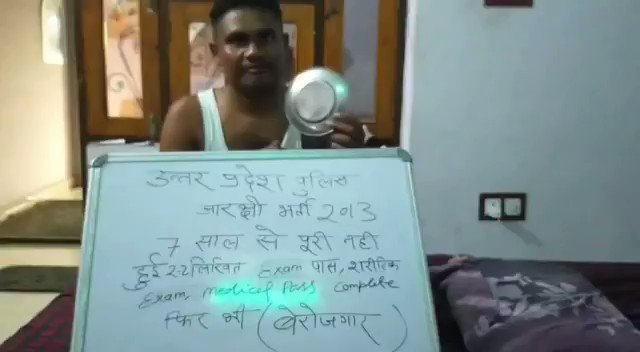 उत्तर प्रदेश पुलिस
आरक्षी भर्ती 2013
7 साल से पूरी नहीं
हुई 2-2 लिखित Exam पास, शारीरिक
Exam, medical Pass complete
फिर भी (बेरोजगार)